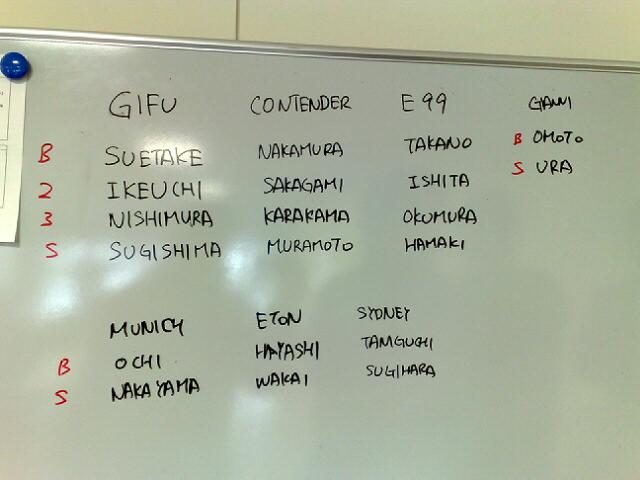 GIFU CONTENDER E99 GIANNI
B SUETAKE NAKAMURA TAKANO B OMOTO
2 IKEUCHI SAKAGAMI ISHITA S URA
3 NISHIMURA KARAKAMA OKUMURA
S SUGISHIMA MURAMOTO HAMAKI
MUNICH ETON SYDNEY
B OCHI HAYASHI TAMGUCHI
S NAKAYAMA WAKAI SUGIHARA